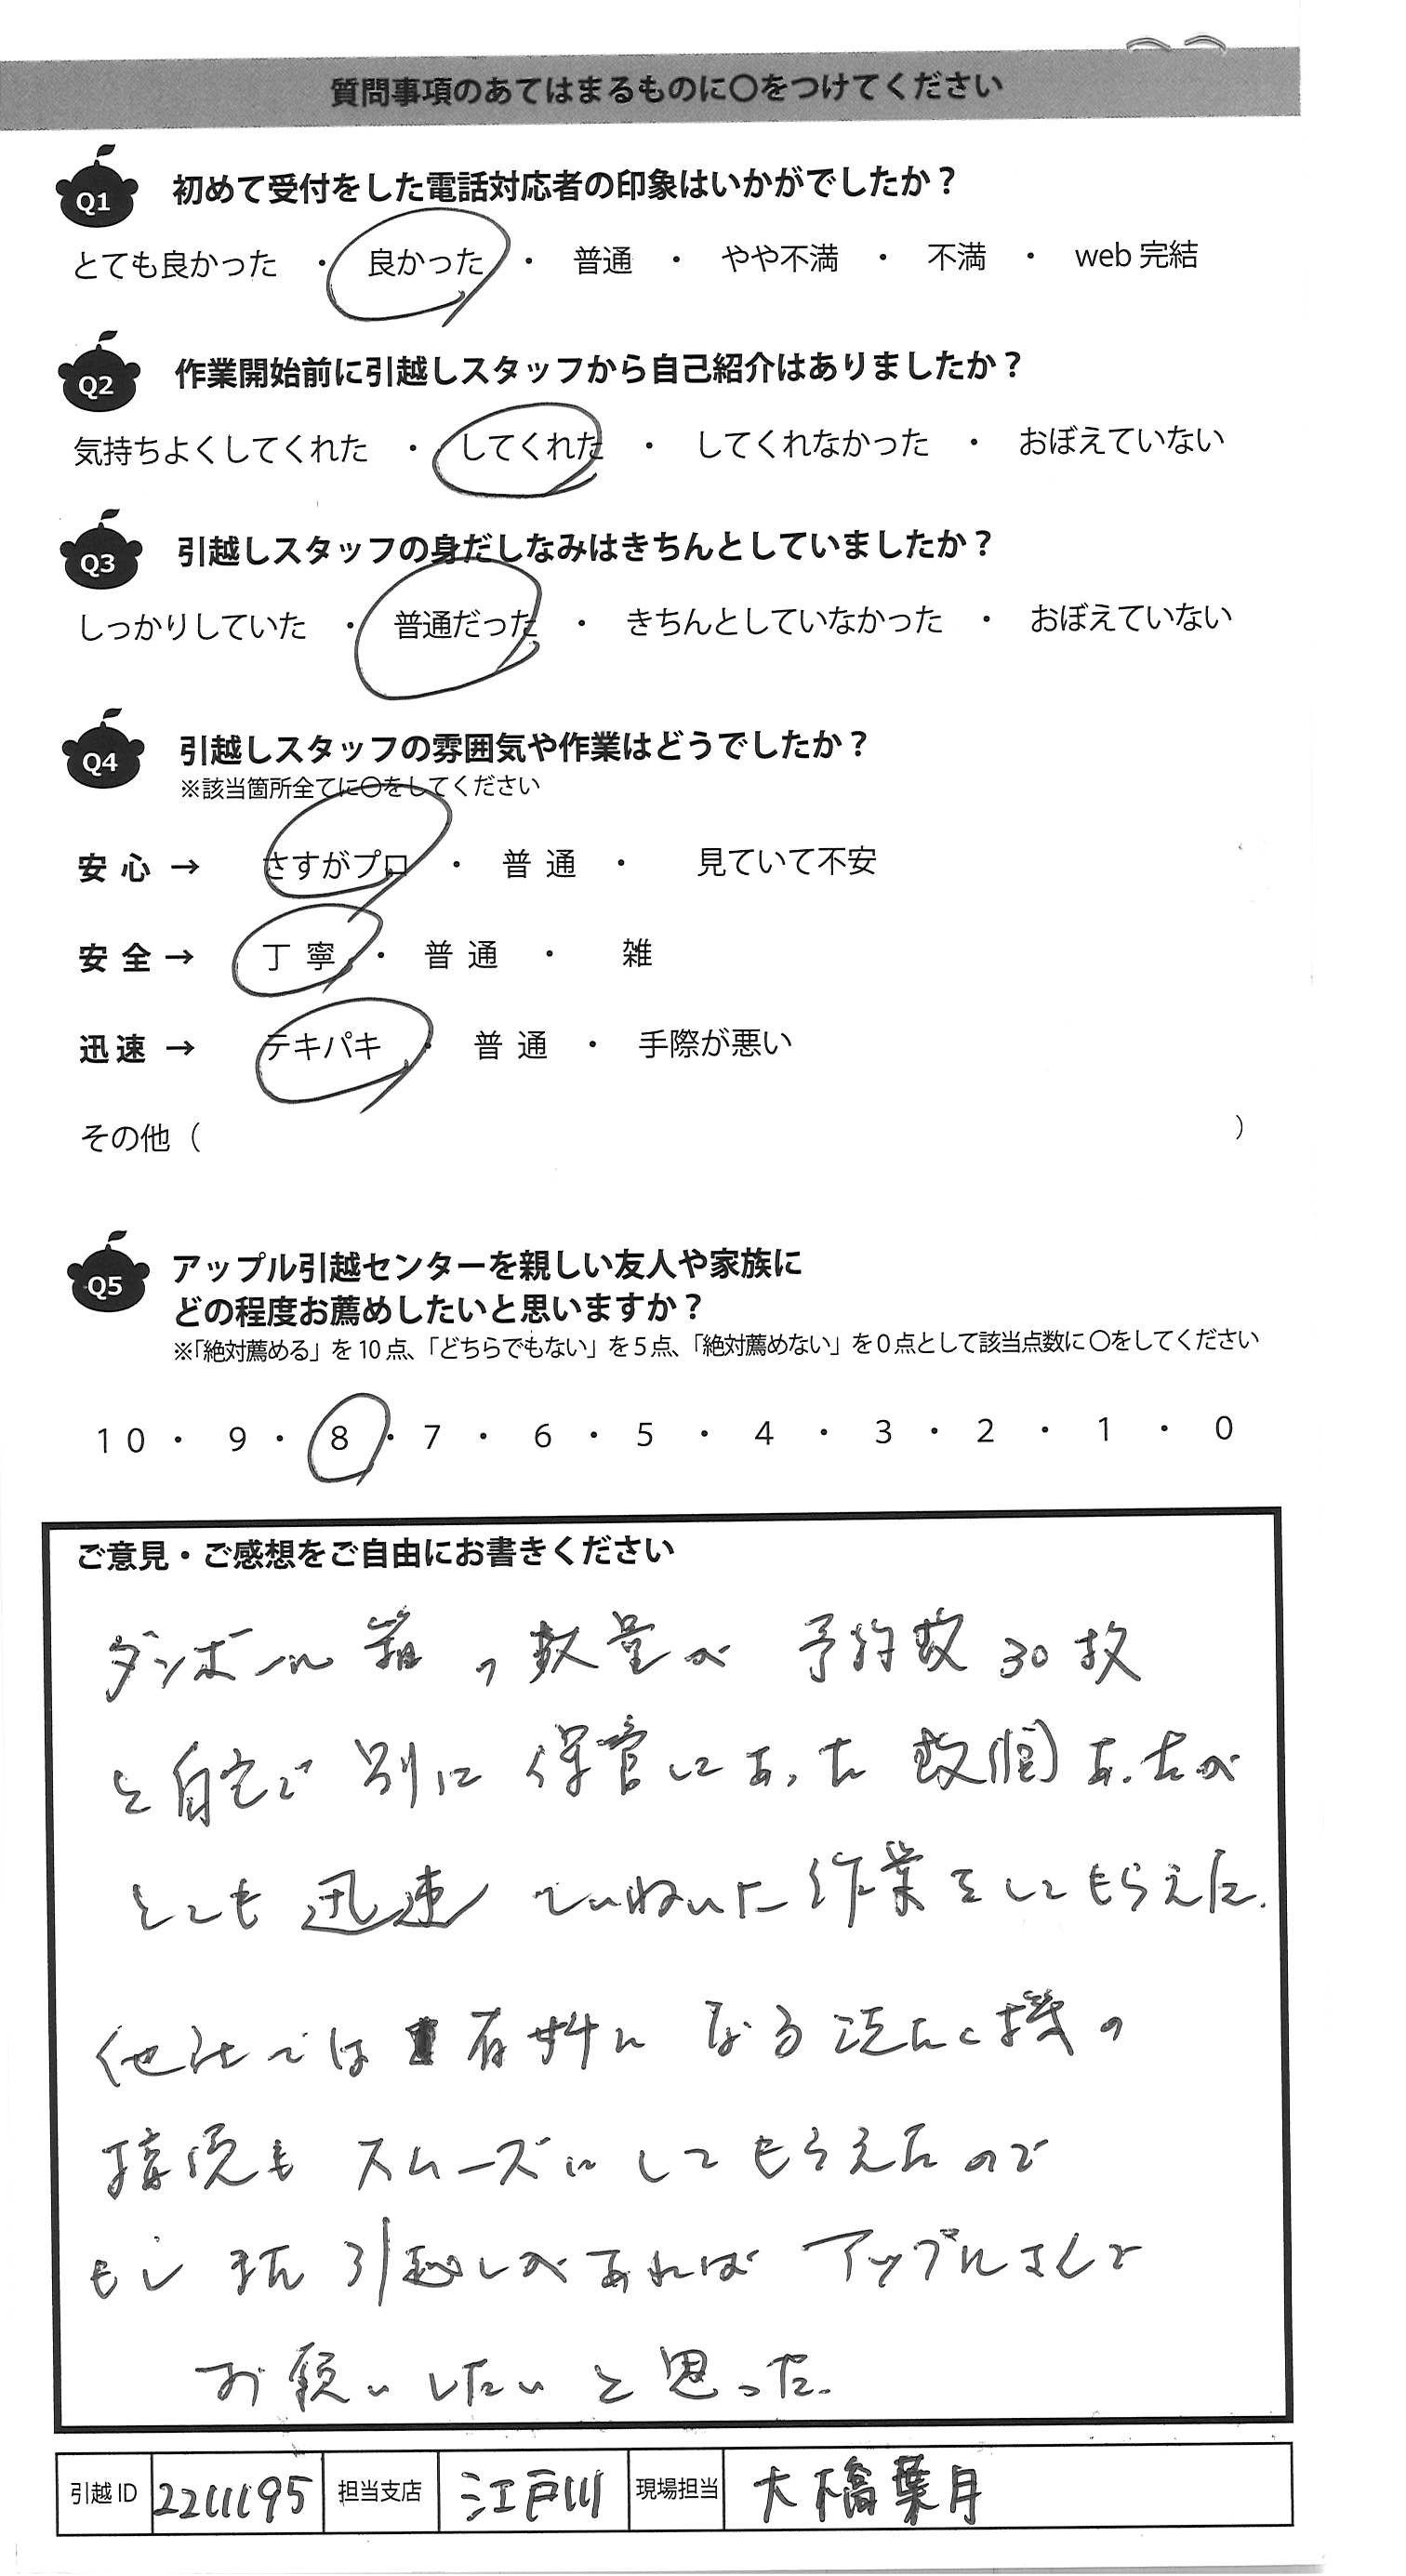 質問事項のあてはまるものに〇をつけてください
Q1 初めて受付をした電話対応者の印象はいかがでしたか？
とても良かった ・ 良かった ・ 普通 ・ やや不満 ・ 不満 ・ web完結
Q2 作業開始前に引越しスタッフから自己紹介はありましたか？
気持ちよくしてくれた ・ してくれた ・ してくれなかった ・ おぼえていない
Q3 引越しスタッフの身だしなみはきちんとしていましたか？
しっかりしていた ・ 普通だった ・ きちんとしていなかった ・ おぼえていない
Q4 引越しスタッフの雰囲気や作業はどうでしたか？
※該当箇所全てに〇をしてください
安心 → さすがプロ ・ 普通 ・ 見ていて不安
安全 → 丁寧 ・ 普通 ・ 雑
迅速 → テキパキ ・ 普通 ・ 手際が悪い
その他（ ）
Q5 アップル引越センターを親しい友人や家族に
どの程度お薦めしたいと思いますか？
※「絶対薦める」を10点、「どちらでもない」を5点、「絶対薦めない」を0点として該当点数に〇をしてください
10 ・ 9 ・ 8 ・ 7 ・ 6 ・ 5 ・ 4 ・ 3 ・ 2 ・ 1 ・ 0
ご意見・ご感想をご自由にお書きください
ダンボール箱の数量が 予約数30枚
と自宅で別に保管してあった 数個あったが
とても迅速 ていねいな作業をしてもらえた.
他社では有料になる洗たく機の
接続もスムーズにしてもらえたので
もしまた引越しがあればアップルさんで
お願いしたいと思った.
引越ID 2211195 担当支店 江戸川 現場担当 大橋葉月